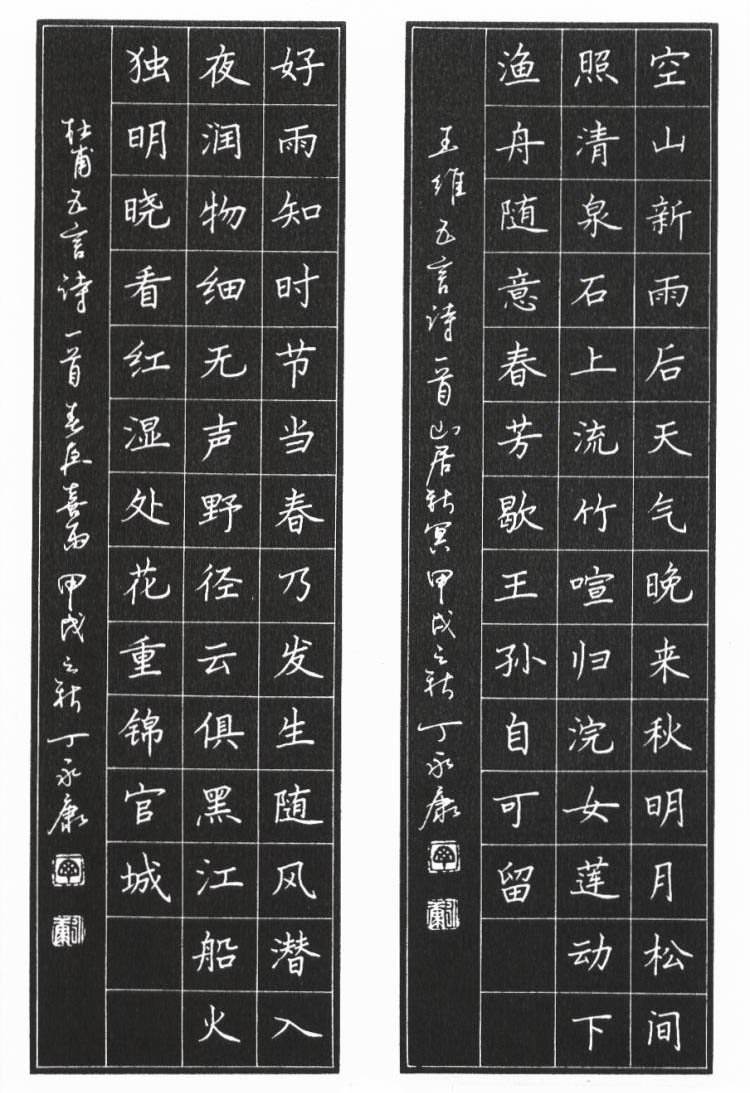 空山新雨后天气晚来秋明月松间
照清泉石上流竹喧归浣女莲动下
渔舟随意春芳歇王孙自可留
王维五言诗一首山居秋冥甲戌之秋丁永康
好雨知时节当春乃发生随风潜入
夜润物细无声野径云俱黑江船火
独明晓看红湿处花重锦官城
杜甫五言诗一首春夜喜雨甲戌之秋丁永康